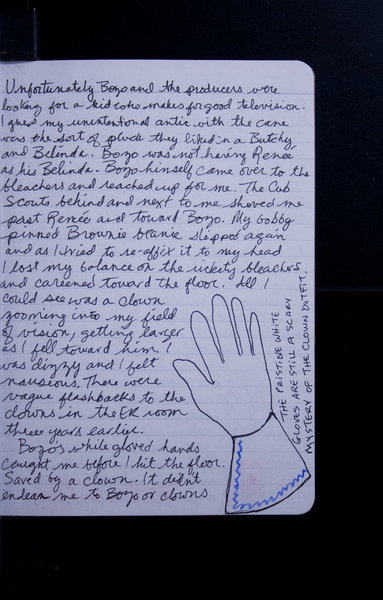 Unfortunately Bozo and the producers were
looking for a kid who makes for good television.
I guess my unintentional antic with the cane
was the sort of pluck they liked in a Butchy
and Belinda. Bozo was not having Renée
as his Belinda. Bozo himself came over to the
bleachers and reached up for me. The Cub
Scouts behind and next to me shoved me
past Renée and toward Bozo. My bobby
pinned Brownie beanie slipped again
and as I tried to re-affix it to my head
I lost my balance on the rickety bleachers
and careened toward the floor. All I
could see was a clown
zooming into my field
of vision, getting larger
as I fell toward him. I
was dizzy and I felt
nauseous. There were
vague flashbacks to the
clowns in the ER room
three years earlier.
Bozo's white gloved hands
caught me before I hit the floor.
Saved by a clown. It didn't
endear me to Bozo or clowns
THE PRISTINE WHITE
GLOVES ARE STILL A SCARY
MYSTERY OF THE CLOWN OUTFIT.